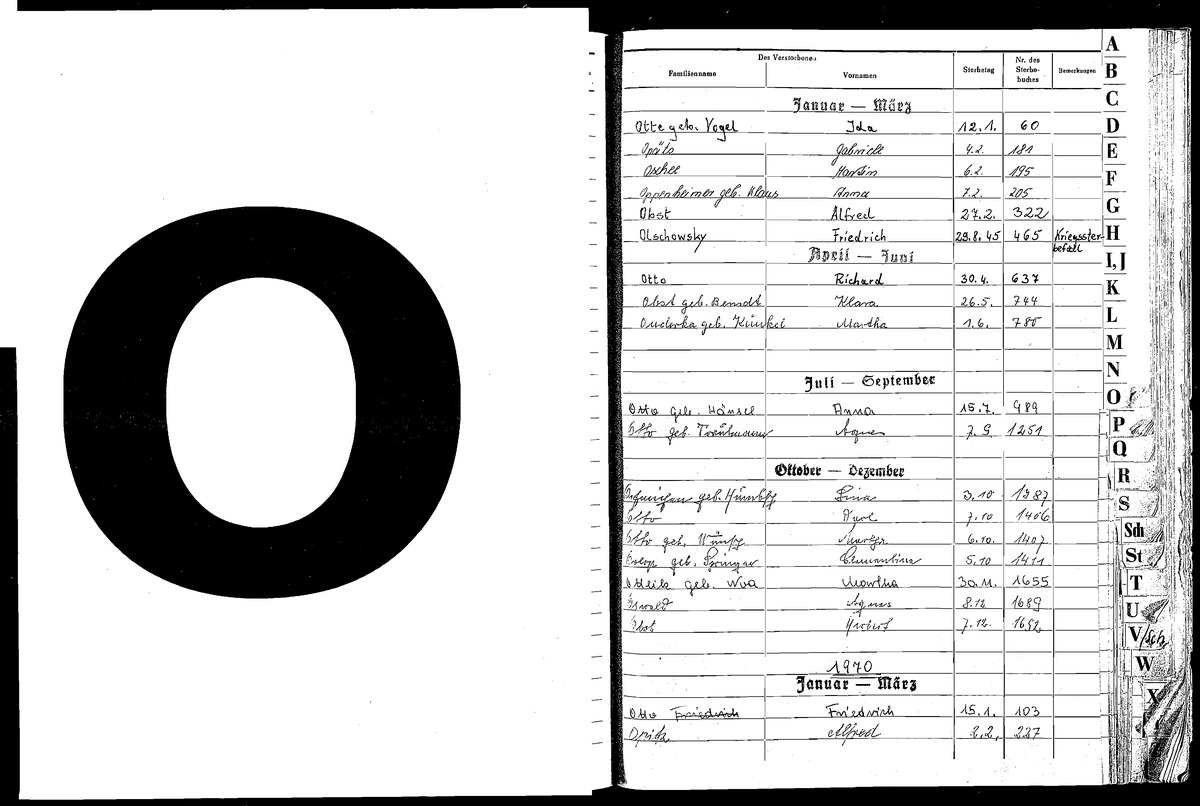 O
Des Verstorbenen
Familienname Vornamen Sterbetag Nr. des Sterbe-buches Bemerkungen
Januar — März
Otte geb. Vogel Ida 12.1. 60
Opätz Gabriele 4.2. 181
Oschee Martin 6.2. 195
Oppenheimer geb. Klaus Anna 7.2. 205
Obst Alfred 27.2. 322
Olschowsky Friedrich 29.8.45 465 Kriegsster-
befall
April — Juni
Otto Richard 30.4. 637
Obst geb. Klara 26.5. 744
geb. Künkel Martha 1.6. 780
Juli — September
Otto geb. Hänsel Anna 15.7. 989
Otto geb. Agnes 7.9. 1251
Oktober — Dezember
geb. Lina 3.10 1387
Otto Karl 7.10 1406
Otto geb. 6.10. 1407
geb. Springer Clementine 5.10 1411
geb. Martha 30.11. 1655
Oswald Agnes 8.12. 1689
Obst Herbert 7.12. 1692
1970
Januar — März
Otto Friedrich Friedrich 15.1. 103
Opitz Alfred 2.2. 237
A
B
C
D
E
F
G
H
I, J
K
L
M
N
O
P
Q
R
S
Sch
St
T
U
V/Sch
W
X